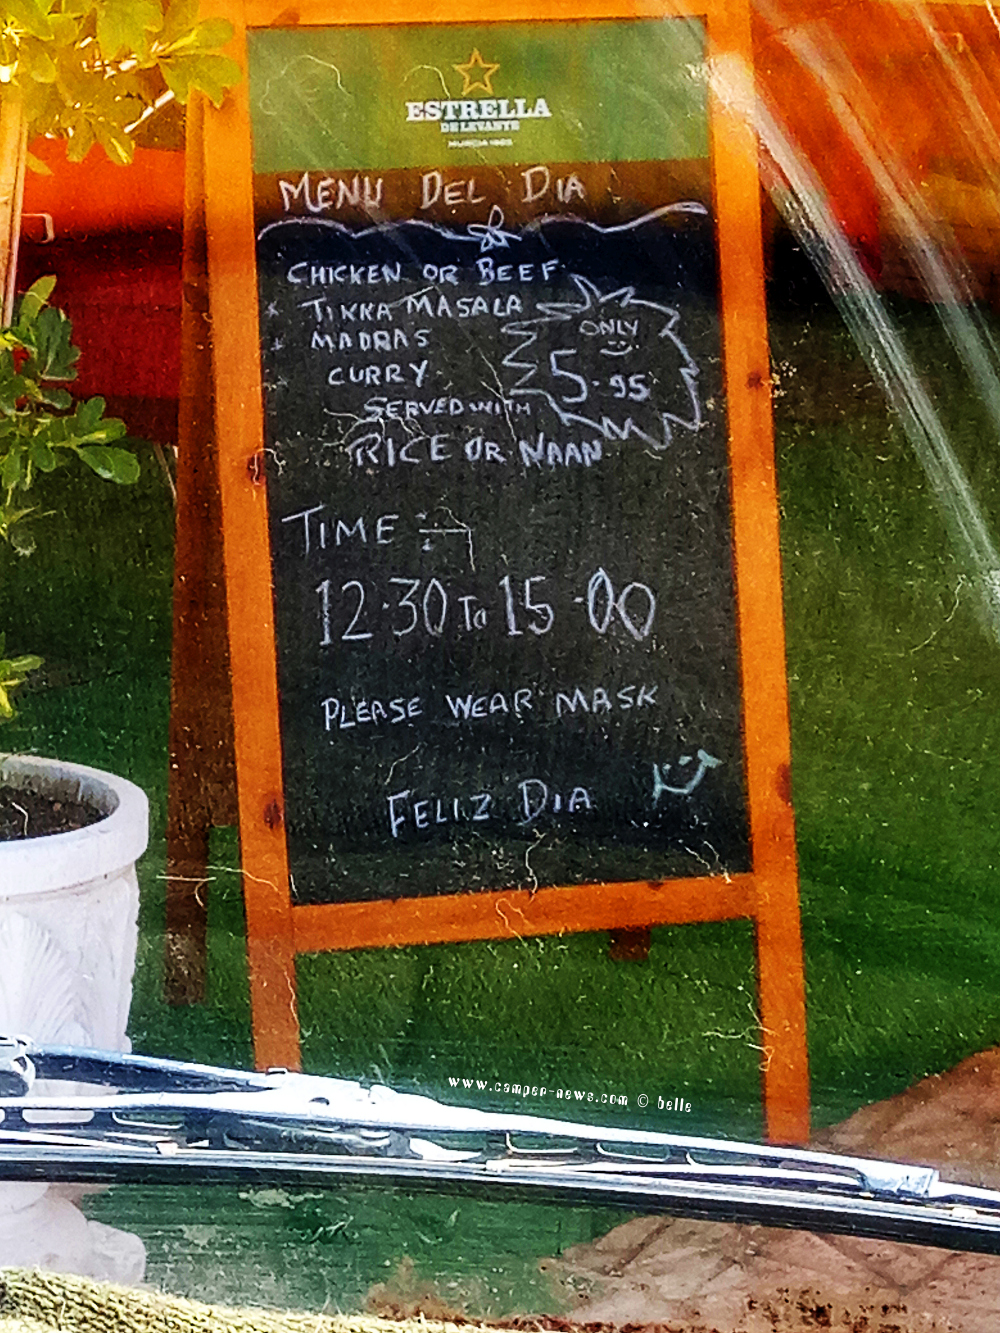 ESTRELLA
DE LEVANTE
MURCIA 1963
MENU DEL DIA
CHICKEN OR BEEF
* TIKKA MASALA
* MADRAS
CURRY
ONLY
5.95
SERVED WITH
RICE OR NAAN
TIME :-
12.30 To 15.00
PLEASE WEAR MASK
FELIZ DIA
www.camper-news.com © belle